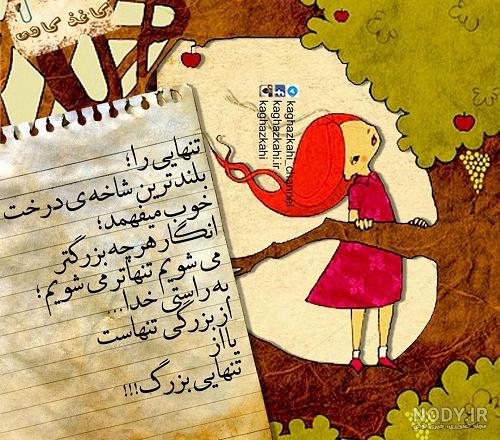 کاغذ کاهی
تنهایی را؛
بلندترین شاخه ی درخت
خوب میفهمد؛
انگار هرچه بزرگتر
می شویم تنهاتر می شویم؛
به راستی خدا...
از بزرگی تنهاست
یا از
تنهایی بزرگ!!!
kaghazkahi_channel
kaghazkahi.ir
kaghazkahi
NODY.IR